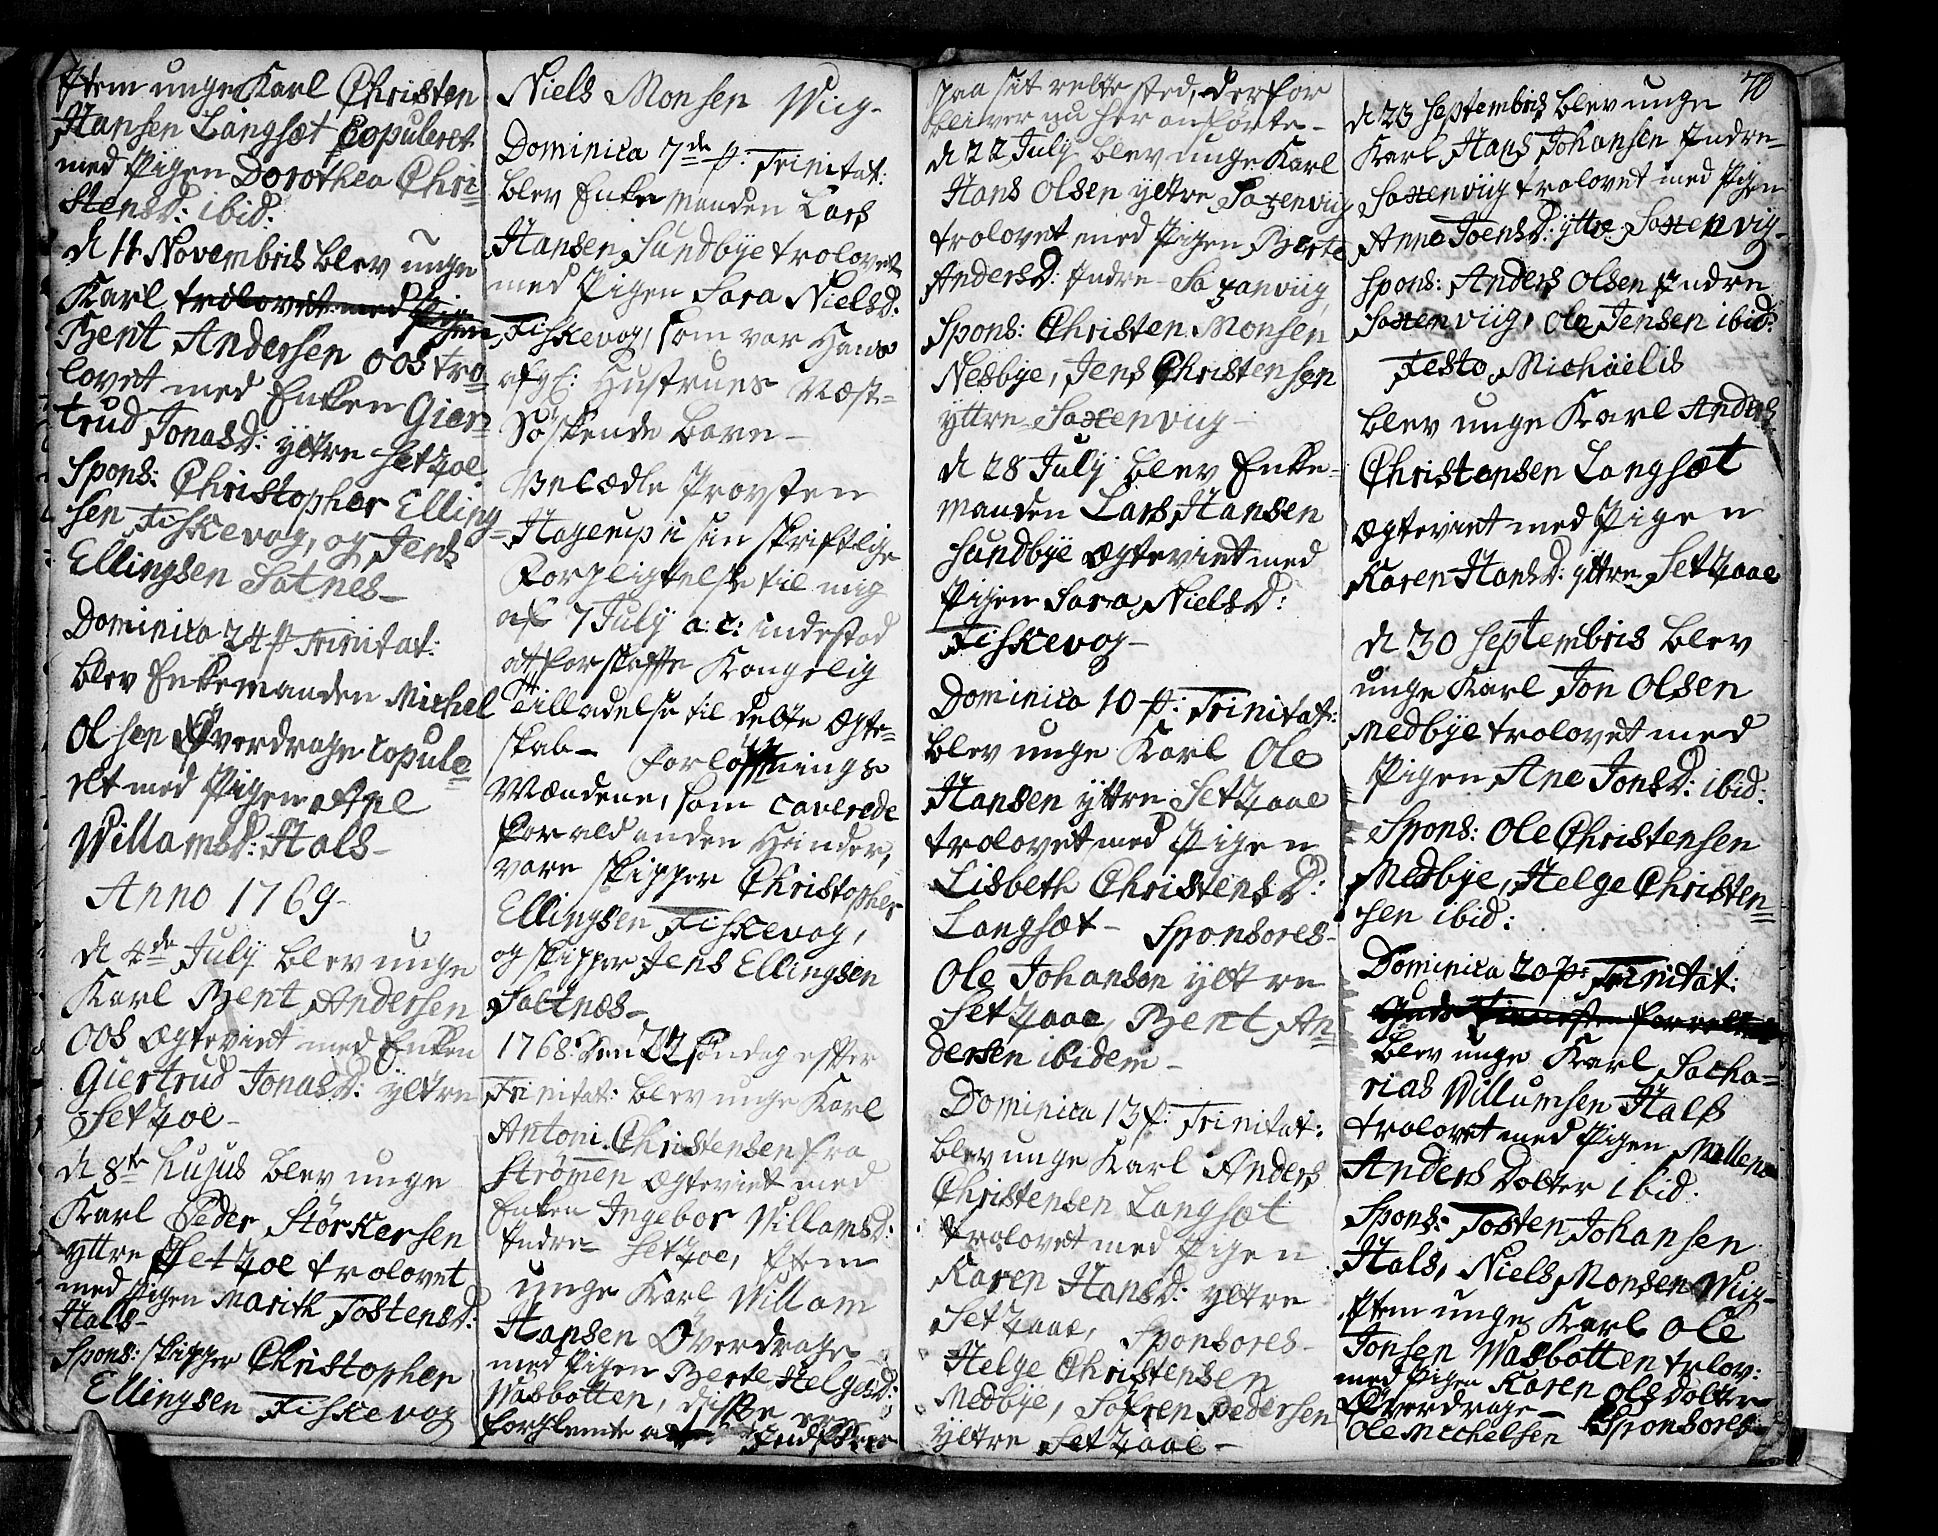 Item unge Karl Christen
Hansen Langsæt Copuleret
med Pigen Dorothea Chri-
stensD: ibid:
d 11 Novembris blev unge
Karl trolovet med Pigen
Bent Andersen Oos tro-
lovet med Enken Gier-
trud JonasD: yttre Setzoe
Spons: Christopher Elling-
sen Fiskevog, og Jens
Ellingsen Satnes-
Dominica 24 p Trinitat:
blev Enkemanden Michel
Olsen Øverdrage copule-
ret med Pigen Ane
WillamsD: Hals-
Anno 1769-
d 4de July blev unge
Karl Bent Andersen
Oos Ægteviet med Enken
Giertrud JonasD: yttre
Setzoe-
d 8te hujus blev unge
Karl Peder Störkersen
yttre Setzoe trolovet
med Pigen Marith TostensD:
Hals-
Spons: Skipper Christopher
Ellingsen Fiskevog
Niels Monsen Wiig-
Dominica 7de p: Trinitat:
blev Enkemanden Lars
Hansen Sundbye trolovet
med Pigen Sara NielsD:
Fiskevog, som var Hans
afgl: Hustrues Næst-
Söskende barn-
Velædle Provsten
Hagerup i sin skriftlige
Forpligtelse til mig
af 7 July a: c: indestod
at forskaffe Kongelig
Tilladelse til dette Ægte-
skab- Forlovnings
Mændene, som caverede
for ald anden Hinder,
vare Skipper Christopher
Ellingsen Fiskevog,
og Skipper Jens Ellingsen
Saltnes-
1768: den 22 Söndag efter
Trinitat: blev unge Karl
Antoni Christensen fra
Strömen Ægteviet med
Enken Ingebor WillamsD:
Indre Setzoe, Item
unge Karl Willam
Hansen Øverdrage
med Pigen Berte HelgesD:
Wasbotten, diske
forglemte at indföre
paa sit rette sted, derfor
bliver nu her anförte-
d 22 July blev unge Karl
Hans Olsen yttre Saxenviig
trolovet med Pigen Berte
AndersD: Indre Saxenviig
Spons: Christen Monsen
Nesbye, Jens Christensen
yttre Saxenviig-
d 28 July blev Enke-
manden Lars Hansen
Sundbye Ægteviet med
Pigen Sara NielsD:
Fiskevog-
Dominica 10 p: Trinitat:
blev unge Karl Ole
Hansen yttre Setzaae
trolovet med Pigen
Lisbeth ChristensD:
Langsæt- Sponsores-
Ole Johansen yttre
Setzaae, Bent An-
dersen ibidem-
Dominica 13 p: Trinitat:
blev unge Karl Anders
Christensen Langsæt
trolovet med Pigen
Karen HansD: yttre
Setzaae, Sponsores-
Helge Christensen
Medbye, Sofren Pedersen
yttre Setzaae-
70
d 23 Septembris blev unge
Karl Hans Johansen Indre-
Saxenviig trolovet med Pigen
Anne JoensD: yttre Saxenviig-
Spons: Anders Olsen Indre
Saxenviig, Ole Jensen ibid:
Festo Michaelis
blev unge Karl Anders
Christensen Langsæt
Ægteviet med Pigen
Karen HansD: yttre Setzaae
d 30 Septembris blev
unge Karl Jon Olsen
Medbye trolovet med
Pigen Ane JonsD: ibid:
Spons: Ole Christensen
Medbye, Helge Christen-
sen ibid:
Dominica 20 p: Trinitat:
blev unge Karl Sacha-
rias Willumsen Hals
trolovet med Pigen Mallena
Anders Dotter ibid:
Spons: Tosten Johansen
Hals, Niels Monsen Wiig-
Item unge Karl Ole
Jonsen Wasbotten trolov:
med Pigen Karen Ols Dotter
Øverdrage- Sponsores
Ole Michelsen